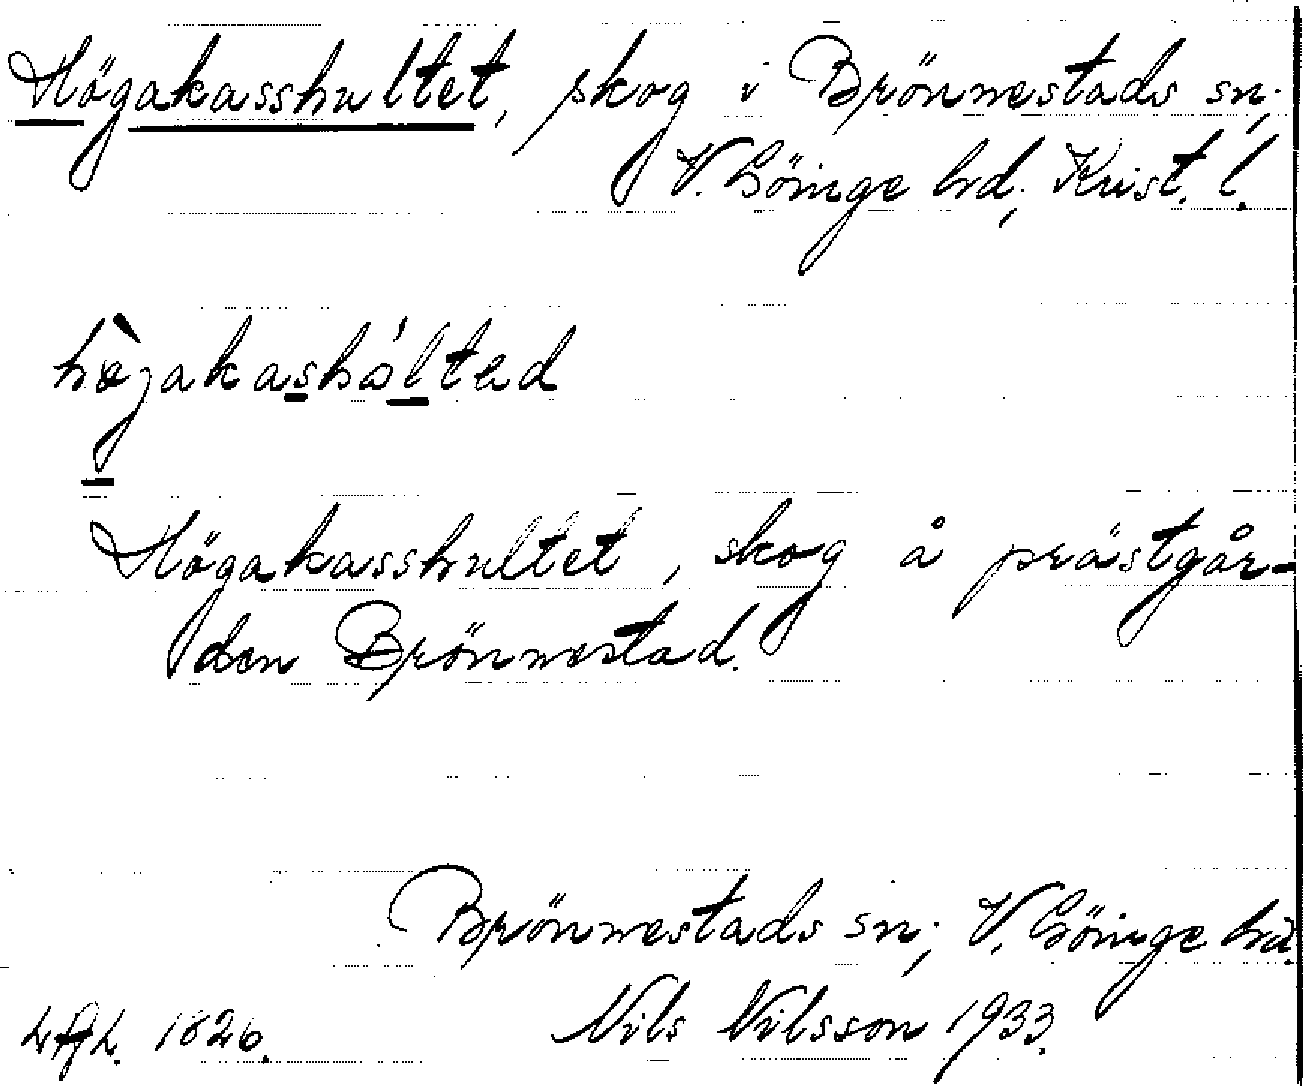 Högakasshultet, skog i Brönnestads sn;
V. Göinge hd; Krist. l.
hø̀jakashǻlted
Högakasshultet, skog å prästgår-
den Brönnestad.
Brönnestads sn; V. Göinge hd.
1826. Nils Nilsson 1933.